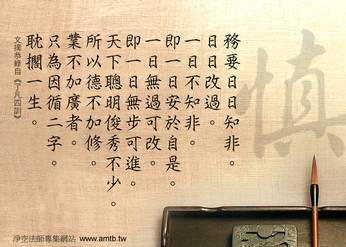 慎
務要日日知非。
日日改過。
一日不知非。
即一日安於自是。
一日無過可改。
即一日無步可進。
天下聰明俊秀不少。
所以德不加修。
業不加廣者。
只為因循二字。
耽擱一生。
文摘恭錄自《了凡四訓》
淨空法師專集網站 www.amtb.tw